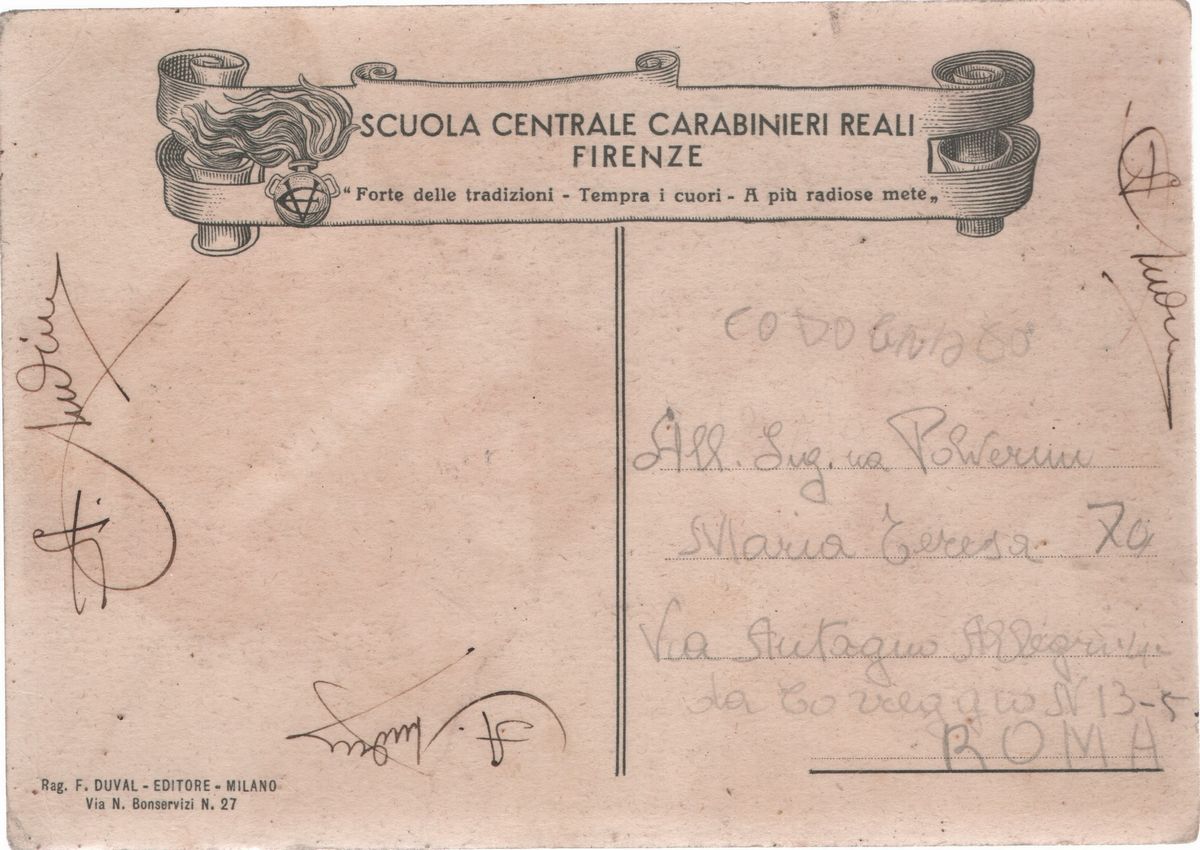 SCUOLA CENTRALE CARABINIERI REALI
FIRENZE
"Forte delle tradizioni - Tempra i cuori - A più radiose mete„
All. Sig.na Polverini
Maria Teresa 70
Via Antagno Allegri
da Correggio N 13-5
ROMA
Rag. F. DUVAL - EDITORE - MILANO
Via N. Bonservizi N. 27